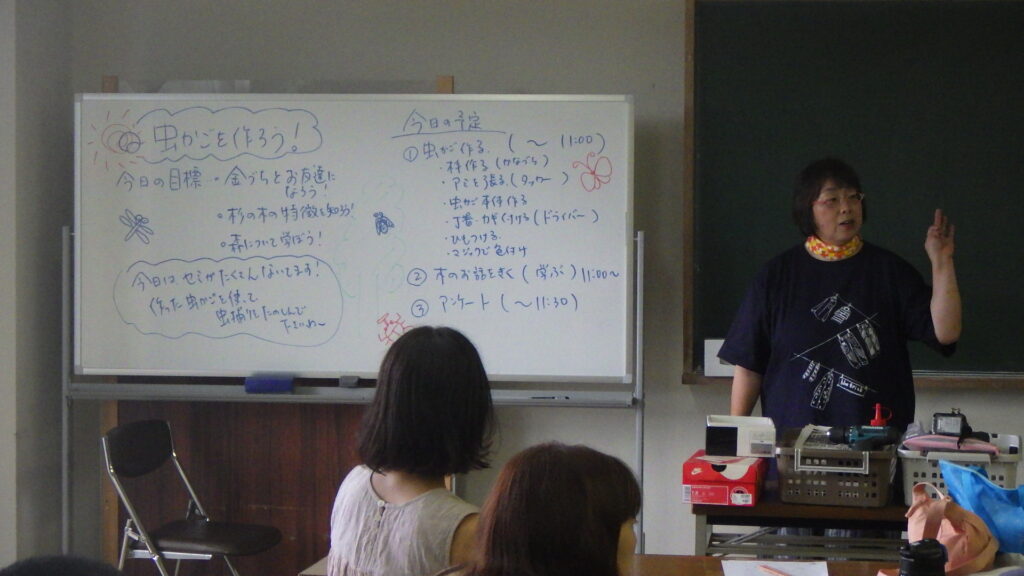 虫かごを作ろう!
今日の目標 ・金づちとお友達に
なろう!
・杉の木の特徴を知ろう!
・森について学ぼう!
今日は セミがたくさんないてます!
作った虫かごを使って
虫捕りをたのしんで
下さいね〜
今日の予定
① 虫かご作る (〜 11:00)
・枠作る (かなづち)
・アミを張る (タッカー)
・虫かご本体作る
・丁番・カギ付ける (ドライバー)
・ひもつける
・マジックで色付け
② 木のお話をきく (学ぶ) 11:00〜
③ アンケート (〜11:30)